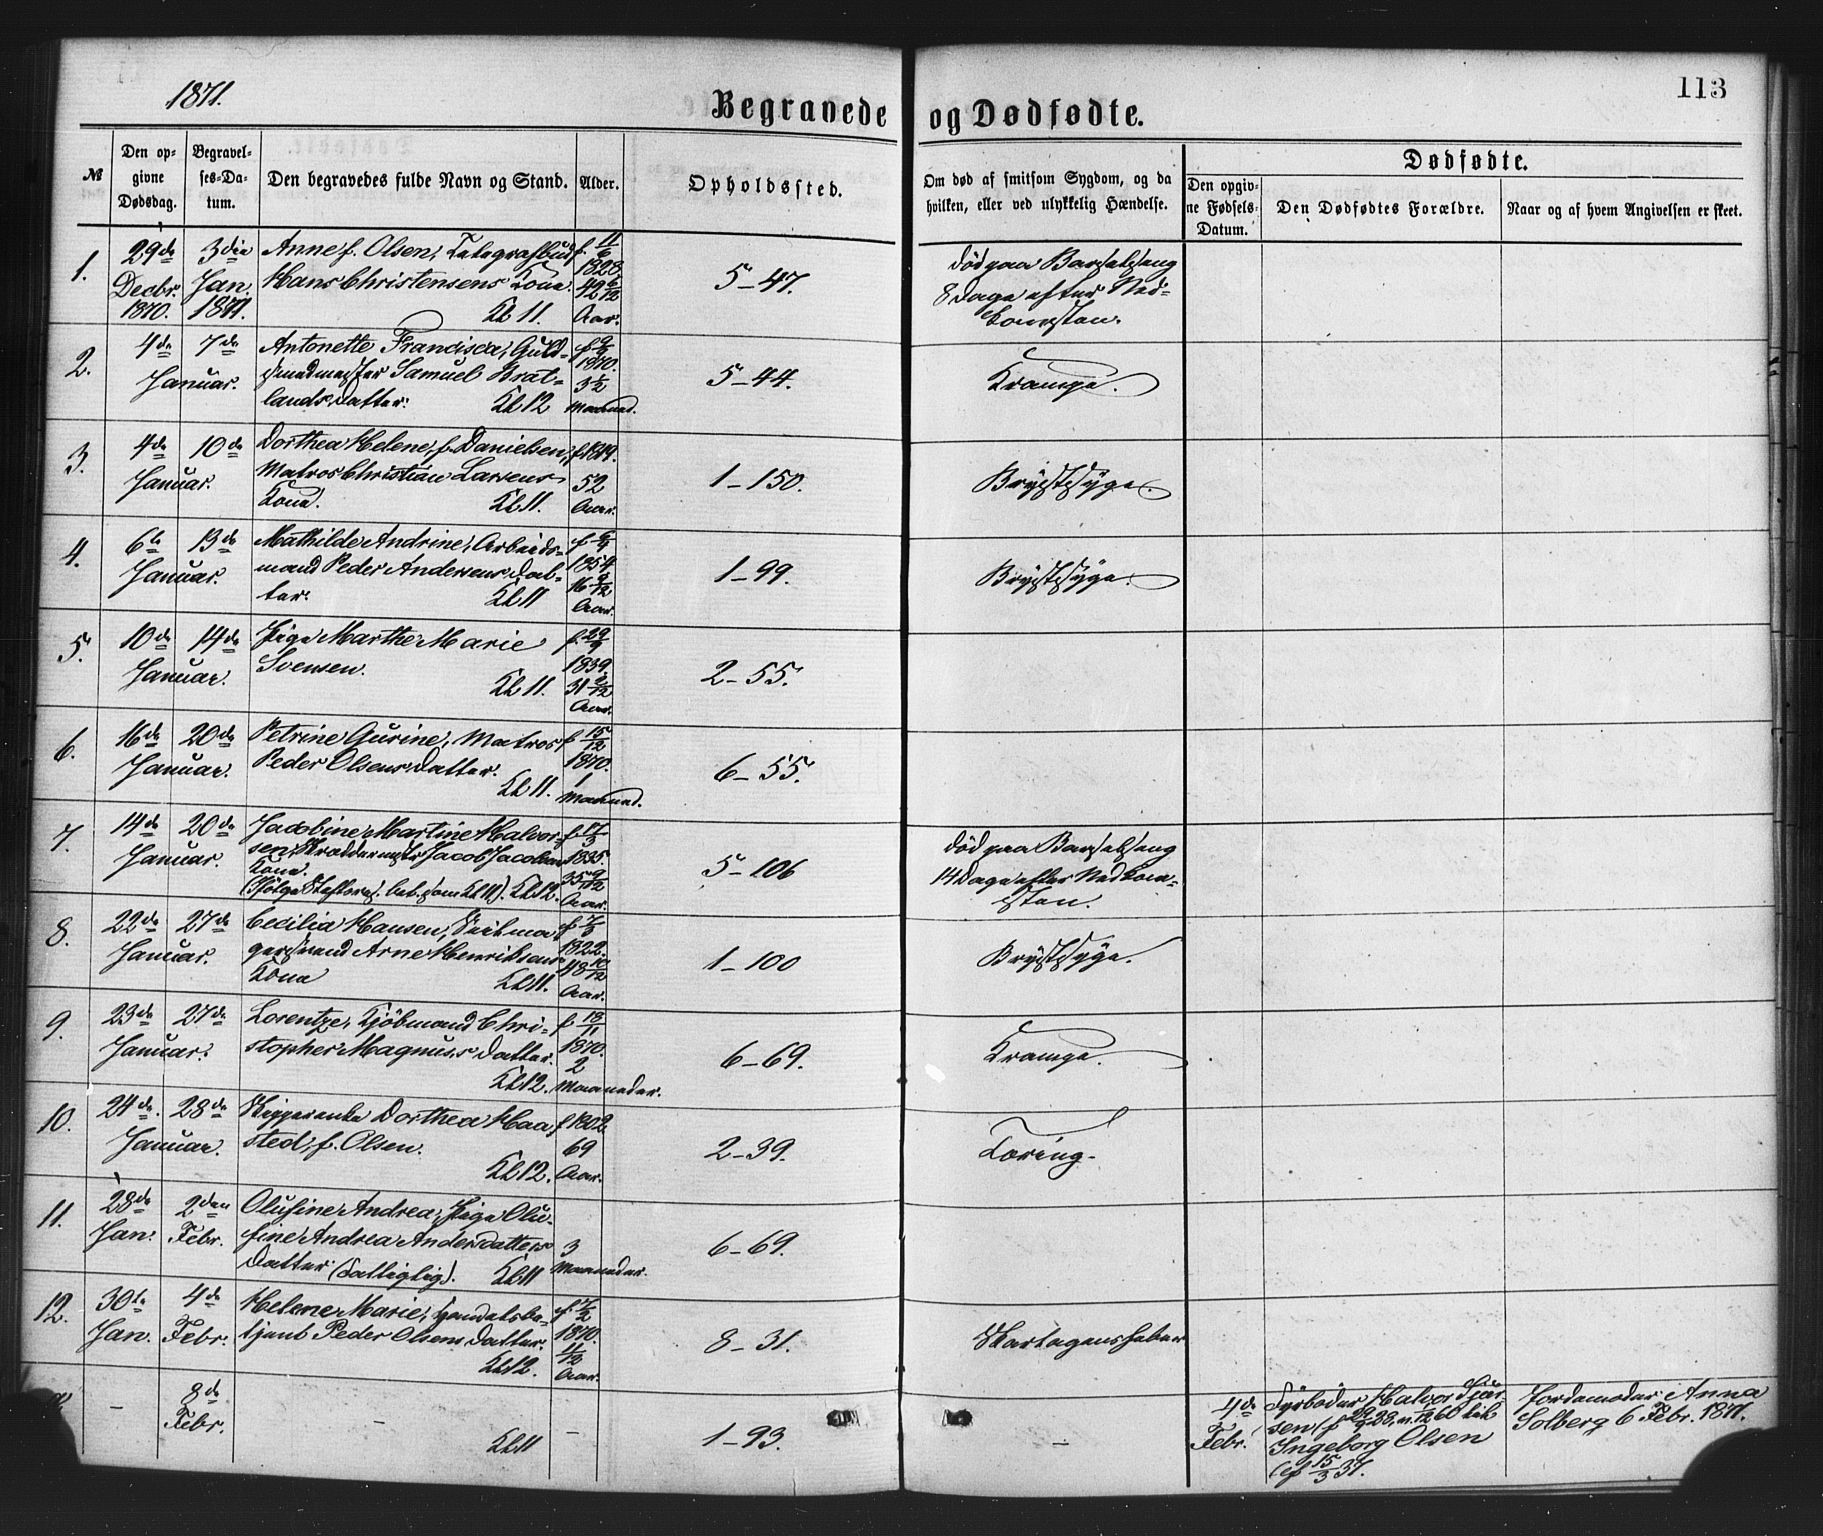 1871.
113
Begravede og Dødfødte.
№
Den opgivne Dødsdag.
Begravelses-Datum.
Den begravedes fulde Navn og Stand.
Alder.
Opholdssted.
Om død af smitsom Sygdom, og da hvilken, eller ved ulykkelig Hændelse.
Dødfødte.
Den opgivne Fødsels-Datum.
Den Dødfødtes Forældre.
Naar og af hvem Angivelsen er skeet.
1.
29de Decbr. 1870.
3die Jan. 1871.
Anne f. Olsen, Telegrafbud
Hans Christensens Kone.
Kl 11.
f. 11/6 1828. 42 6/12 Aar.
5-47.
død paa Barselseng
8 Dage efter Ned-
komsten.
2.
4de
7de
Januar.
Antonette Francisca, Guld-
smedmester Samuel Brat-
lands datter.
Kl 12
f. 9/9 1870. 3 1/2 Maaned.
5-44.
Krampe.
3.
4de
10de
Januar.
Dorthea Helene, f. Danielsen,
Matros Christian Larsens
Kone.
Kl 11.
f. 1819. 52 Aar.
1-150.
Brystsyge.
4.
6te
13de
Januar.
Mathilde Andrine, Arbeids-
mand Peder Andersens dat-
ter.
Kl 11
1854. 16 9/12 Aar.
1-99.
Brystsyge.
5.
10de
14de
Januar.
Pige Marthe Marie
Svensen.
Kl 11.
f. 29/9 1839. 31 Aar.
2-55.
6.
16de
20de
Januar.
Petrine Gurine, Matros
Peder Olsens datter.
Kl 11.
f. 15/12 1870. 1 Maaned.
6-55.
7.
14de
20de
Januar.
Jacobine Martine Halvor-
sen, Jacob Jacobsens
Kone.
Kl 12.
f. 17/3 1835. 35 9/12 Aar.
5-106
død paa Barselseng
14 Dage efter Nedkom-
sten.
8.
22de
27de
Januar.
Cecilia Hansen, Seilma-
gersvend Arne Henriksens
Kone
Kl 11.
1822. 48 10/12 Aar.
1-100
Brystsyge.
9.
23de
27de
Januar.
Lorentze, Kjöbmand Chri-
stopher Magnus's datter.
Kl 12.
f. 18/11 1870. 2 Maaneder.
6-69.
Krampe.
10.
24de
28de
Januar.
Skipperenke Dorthea Haa-
sted, f. Olsen.
Kl 12.
f 1802. 69 Aar.
2-39.
Tæring.
11.
28de Jan.
2den Febr.
Olufine Andrea, Pige Olu-
fine Andrea Andersdatters
datter (Fattiglig).
Kl 11
3 Maaneder.
6-69.
12.
30te Jan.
4de Febr.
Helene Marie,
Peder Olsens datter.
Kl 12.
1870. 11/12 Aar.
8-31.
Skarlagensfeber
-
8de Febr.
-
Kl 11
-
1-93.
-
4de Febr.
Fyrbøder Halvor
sen (f 29/9 28, n. 1/12 60 til
Ingeborg Olsen
(f 15/3 37.
Jordemoder Anna
Solberg 6 Febr. 1871.